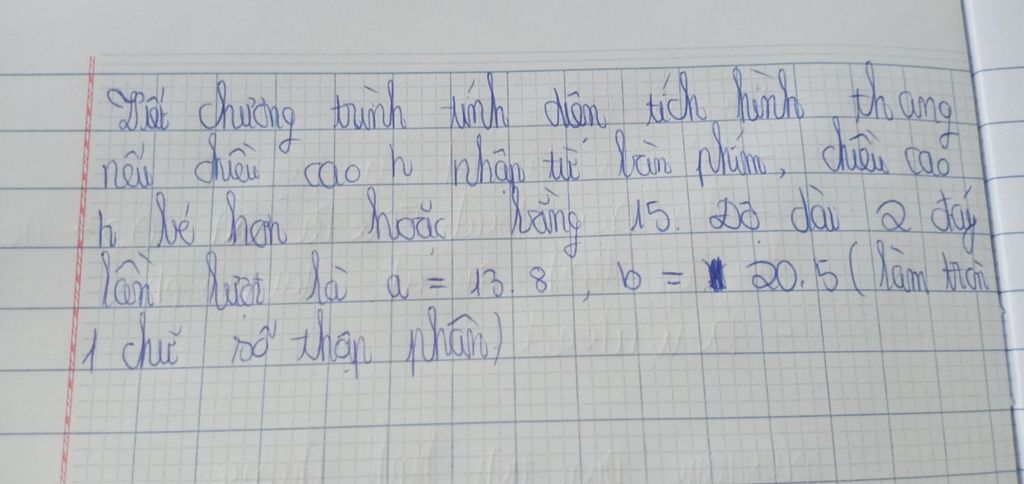 Viết chương trình tính diện tích hình thang
nếu chiều cao h nhập từ bàn phím, chiều cao
h bé hơn hoặc bằng 15. Độ dài 2 đáy
lần lượt là a = 13.8, b = 20.5 (làm tròn
1 chữ số thập phân)